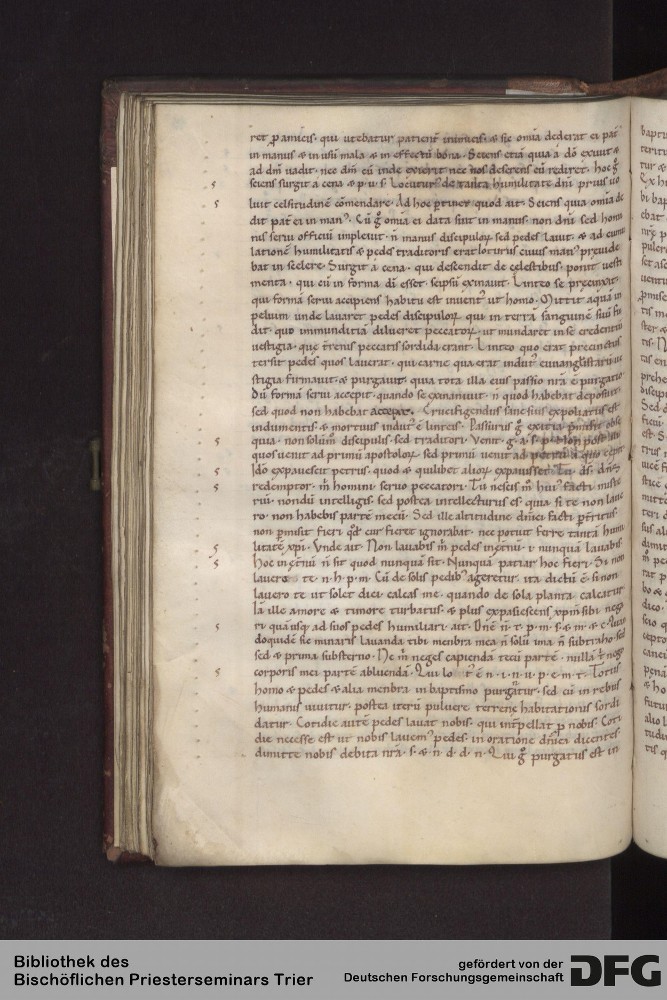 ret ꝓ amicis. qui utebatur patient inimicis. & sic om̅ia dederat ei pat̅
in manus & in usu̅ mala & in effectu̅ bona. Sciens etia̅ quia a do̅ exiuit &
ad dm̅ uadit. nec dm̅ cu̅ inde exierit nec nos deserens cu̅ rediret. hoc g̊
sciens surgit a cena & p. u. s. Locutur' de tanta humilitate dn̅i prius uo
luit celsitudine̅ co̅mendare. Ad hoc ꝑtinet quod ait. Sciens quia om̅ia de
dit pat̅ ei in man'. Cu̅ g̊ om̅ia ei data sint in manus. non dn̅i sed homi
nis serui officiu̅ impleuit.
latione̅ humilitatis & pedes traditoris erat loturus cuius man' preuide
bat in scelere. Surgit a cena. qui descendit de celestibus. ponit uesti
menta. qui cu̅ in forma di̅ esset. seipsu̅ exinaiut. Linteo se precinxit.
qui forma̅ serui accipiens habitu est inuent' ut homo. Mittit aqua̅ in
peluim unde lauaret pedes discipuloꝝ. qui in terra̅ sanguine̅ suu̅ fu
dit. quo inmunditia̅ dilueret peccatoꝝ. ut mundaret in se credentiu̅
uestigia. que t̅renis peccatis sordida erant. Linteo quo erat precinctus
tersit pedes quos lauerat. qui carne qua erat indut' euuangelistaru̅ ue
stigia firmauit. & purgauit. quia tota illa eius passio nr̅a e̅ purgatio.
Du̅ forma̅ serui accepit. quando se exinaniuit. n̅ quod habebat deposuit.
sed quod non habebat accepit. Crucifigendus sane suis expoliatus est
indumentis. & mortuus indut' e̅ linteis. Passurus g̊ exitia
quia. non solu̅m discipulis. sed traditori. Venit. g. a. s. p.
quos uenit ad primu̅ apostoloꝝ. sed primu̅ uenit ad petru̅
Ido expauescit petrus. quod & quilibet alioꝝ expauisset. Tu. ds̅. dn̅s.
redemptor. m̅ homini. seruo peccatori. Tu nescis m̅ hui' facti miste
riu̅. nondu̅ intelligis. sed postea intellecturus es. quia si te non laue
ro. non habebis parte̅ mecu̅. Sed ille altitudine dn̅ici facti
non ꝑmisit fieri. q̊d cur fieret ignorabat. nec potuit ferre tanta̅ humi
litate̅ xp̅i. Vnde ait. Non lauabis m̅ pedes
Hoc n̅ sit quod nunqua̅ sit. Nunqua̅ patiar hoc fieri. Si non
lauero te. n. h. p. m. Cu̅ de solis pedib' ageretur. ita dictu̅ e̅. si non
lauero te ut solet dici. calcas me. quando de sola planta calcatur.
la ille amore & timore turbatus. & plus expauescens xp̅m sibi nega
ri. quamsq; ad suos pedes humiliari. ait. Dn̅e n̅ t. p. m. s. & m. & c.
doquide̅ sic minaris lauanda tibi menbra mea n̅ solu̅ ima n̅ subtraho. sed
sed & prima substerno. Ne m̅ neges capienda̅ tecu̅ parte̅. nulla̅ t̅ nego
corporis mei parte̅ abluenda̅. Qui lo t' e̅. n. i. n. u. p. e. m. t. Totus
homo & pedes & alia menbra in baptismo purgat̅ur. sed cu̅ in rebus
humanis uiuitur. postea iteru̅ puluere terrene habitationis sordi
datur. Cotidie aute̅ pedes lauat nobis. qui int̅pellat ꝓ nobis. Coti
die necesse est ut nobis lauem' pedes. in oratione dn̅ica dicentes.
dimitte nobis debita nr̅a. s. & n. d. d. n. Qui g̊ purgatus est in
Bibliothek des
Bischöflichen Priesterseminars Trier
gefördert von der
Deutschen Forschungsgemeinschaft
DFG